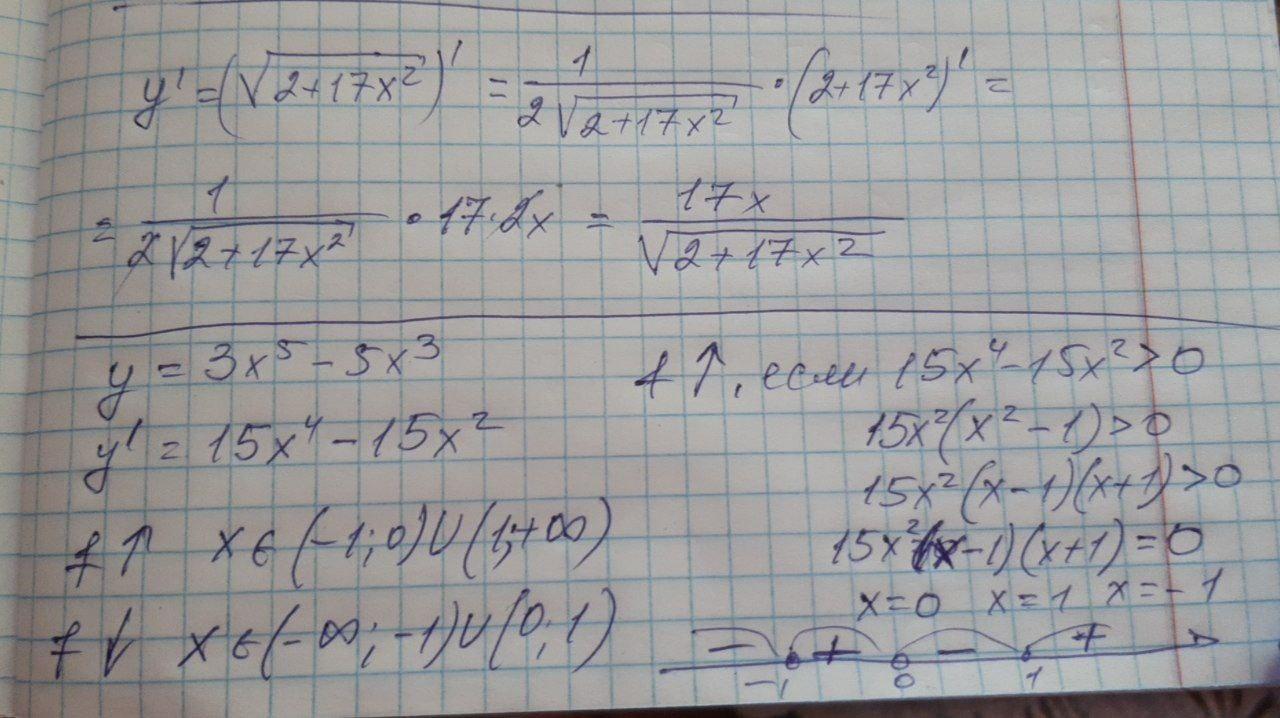 y' = (√(2+17x²))' = 1/(2√(2+17x²)) · (2+17x²)' =
= 1/(2√(2+17x²)) · 17·2x = 17x/√(2+17x²)
y = 3x⁵ - 5x³
y' = 15x⁴ - 15x²
f ↑ x ∈ (-1; 0) ∪ (1; +∞)
f ↓ x ∈ (-∞; -1) ∪ (0; 1)
f ↑, если 15x⁴ - 15x² > 0
15x²(x² - 1) > 0
15x²(x-1)(x+1) > 0
15x²(x-1)(x+1) = 0
x=0 x=1 x=-1
- + - +
-1 0 1